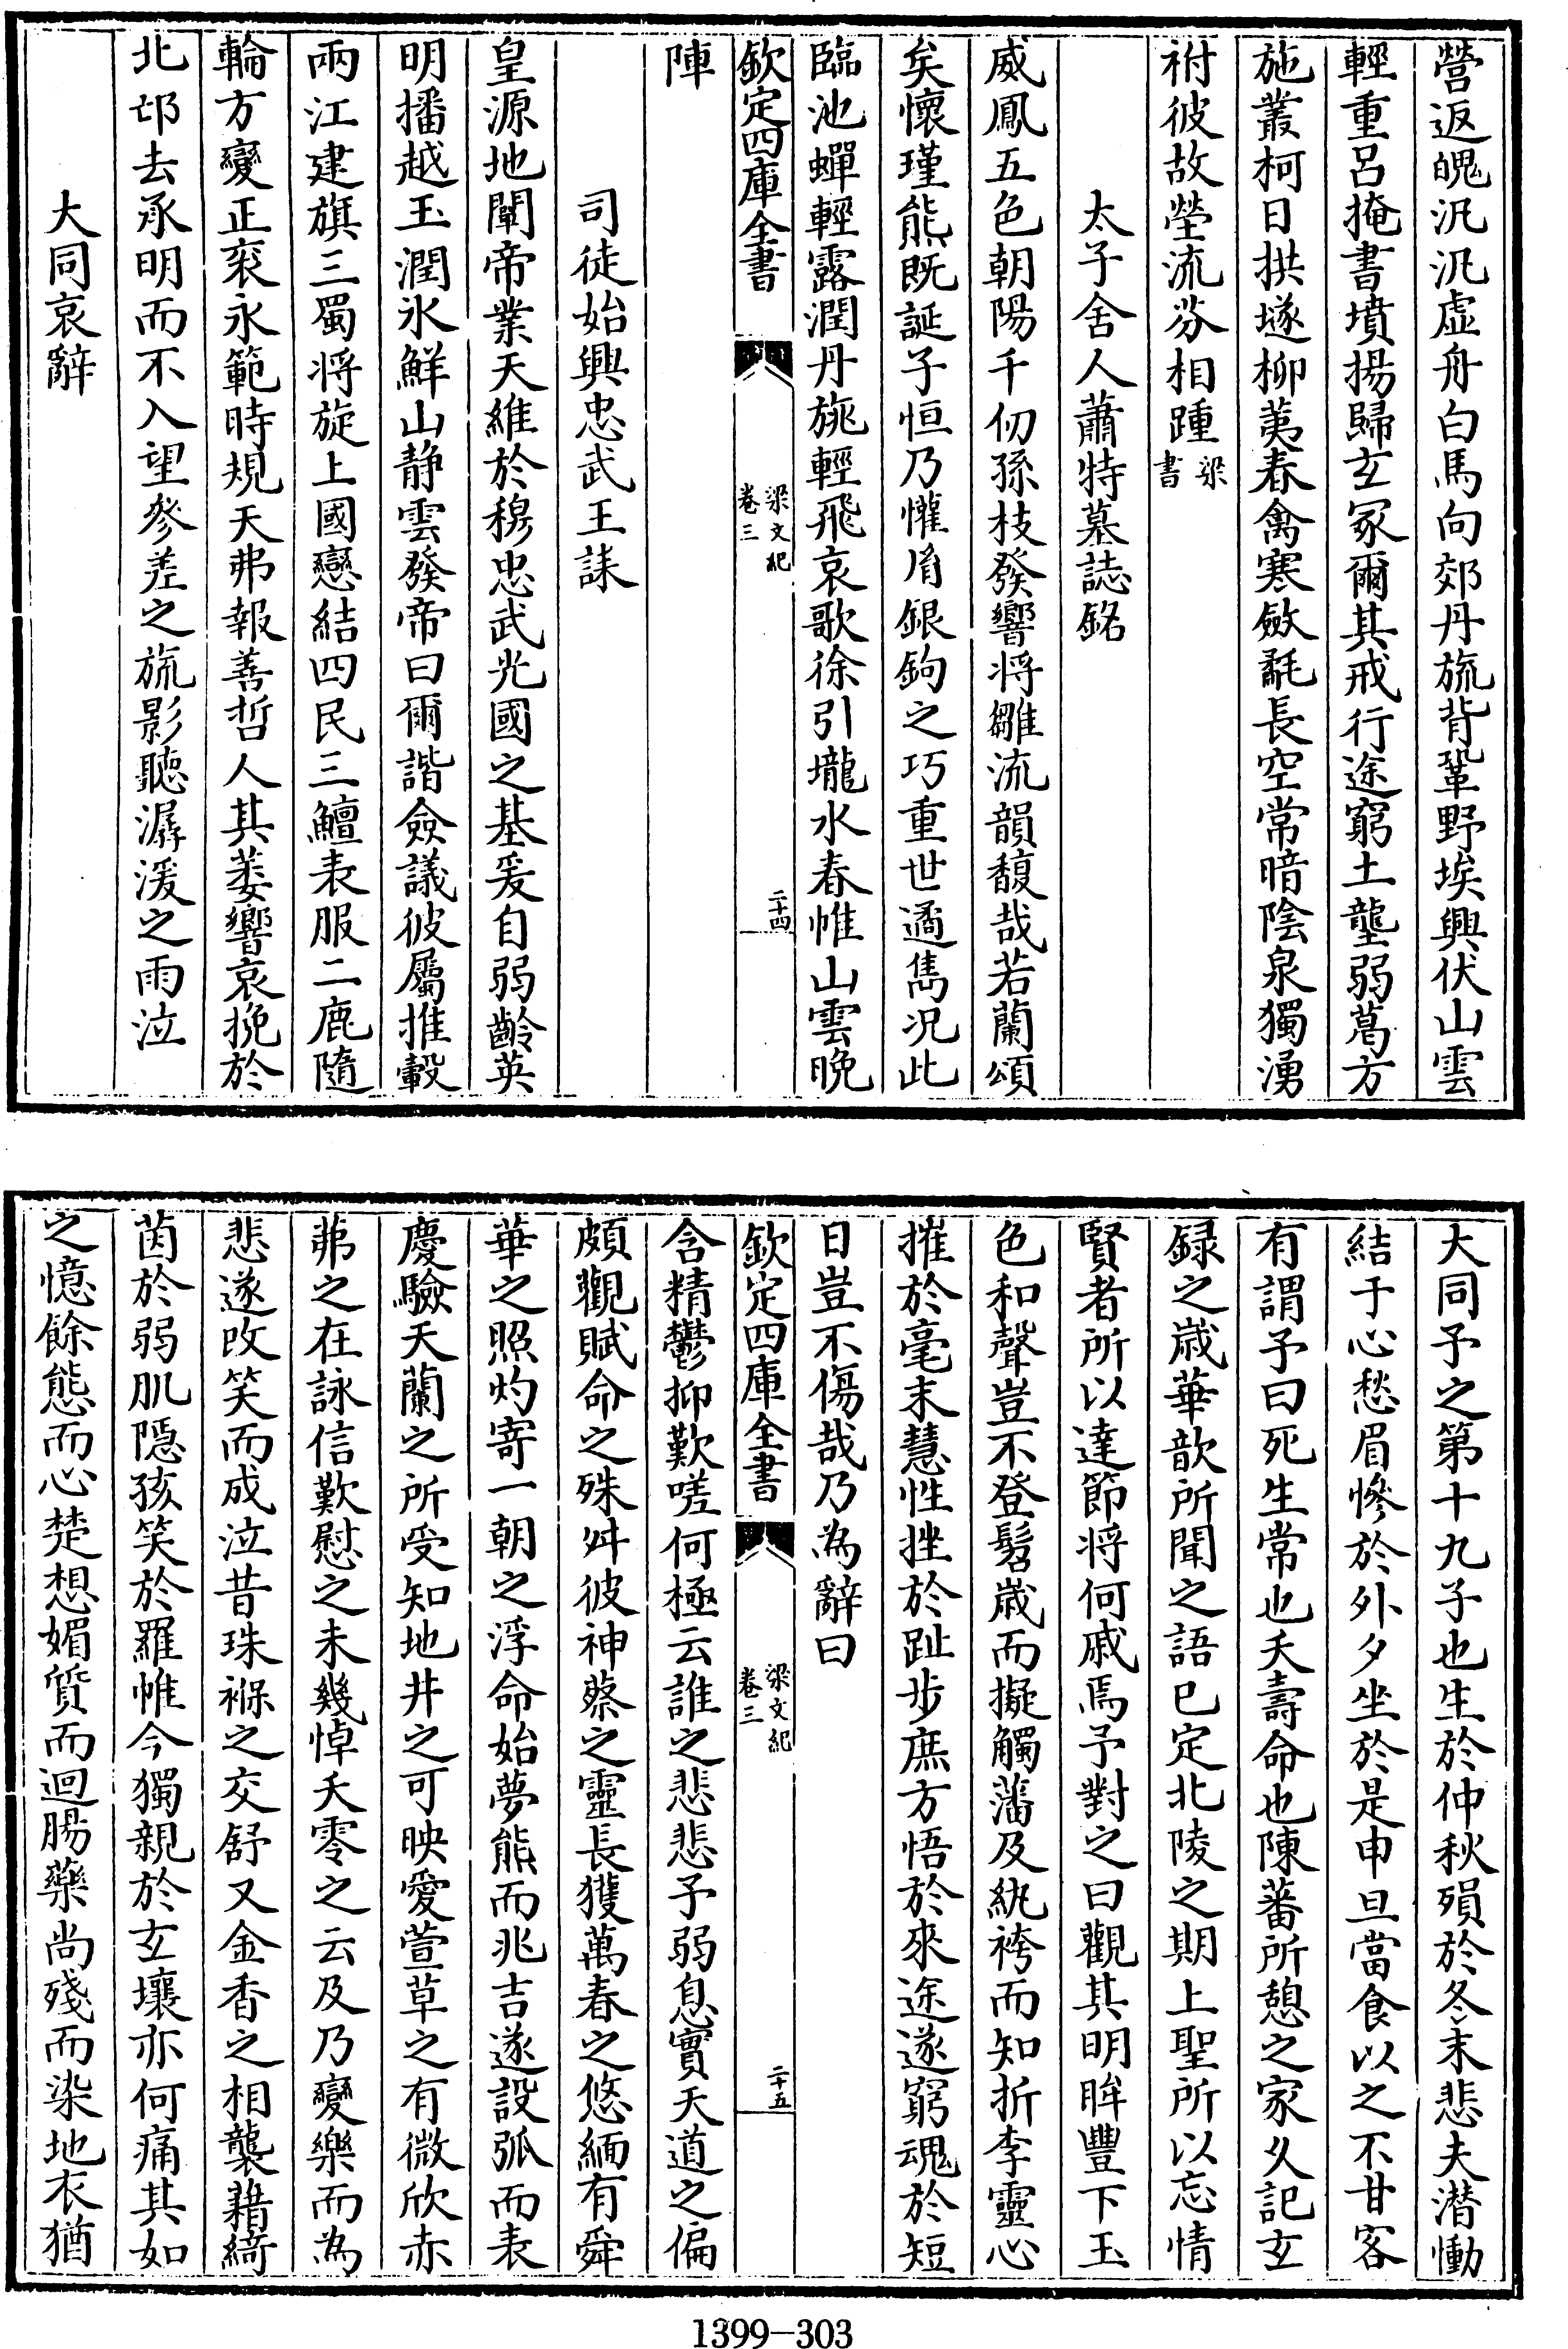 營返魄汎汎虛舟白馬向郊丹旐背鞏野埃興伏山雲
輕重呂掩書墳揚歸玄冢爾其戒行途窮土壟弱葛方
施叢柯日拱遂柳荑春禽寒斂氄長空常暗陰泉獨湧
祔彼故塋流芬相踵梁書
太子舍人蕭特墓誌銘
威鳳五色朝陽千仞孫枝發響將雛流韻馥哉若蘭頌
矣懷瑾熊既誕子恒乃懽㣧銀鉤之巧重世遹雋況此
臨池蟬輕露潤丹旐輕飛哀歌徐引壠水春帷山雲晚
欽定四庫全書
梁文紀
卷三
二十四
陣
司徒始興忠武王誄
皇源地闡帝業天維於穆忠武光國之基爰自弱齡英
明播越玉潤冰鮮山静雲發帝曰爾諧僉議彼屬推轂
兩江建旗三蜀將旋上國戀結四民三鱣表服二鹿隨
輪方變正衮永範時規天弗報善哲人其萎響哀挽於
北邙去承明而不入望參差之旐影聽潺湲之雨泣
大同哀辭
大同予之第十九子也生於仲秋殞於冬末悲夫潛慟
結于心愁眉慘於外夕坐於是申旦當食以之不甘客
有謂予曰死生常也夭壽命也陳蕃所憩之家久記玄
録之歲華歆所聞之語已定北陵之期上聖所以忘情
賢者所以達節將何戚焉予對之曰觀其明眸豐下玉
色和聲豈不登髫歲而擬觸藩及紈袴而知折李靈心
摧於毫末慧性挫於趾步庶方悟於來途遂窮魂於短
日豈不傷哉乃為辭曰
欽定四庫全書
梁文紀
卷三
二十五
含精鬱抑歎嗟何極云誰之悲悲予弱息實天道之偏
頗觀賦命之殊舛彼神蔡之靈長獲萬春之悠緬有舜
華之照灼寄一朝之浮命始夢熊而兆吉遂設弧而表
慶驗天蘭之所受知地井之可映愛萱草之有微欣赤
茀之在詠信歎慰之未幾悼夭零之云及乃變樂而為
悲遂改笑而成泣昔珠褓之交舒又金香之相襲藉綺
茵於弱肌隱孩笑於羅帷今獨親於玄壤亦何痛其如
之憶餘態而心楚想媚質而迴腸藥尚殘而染地衣猶
1399-303